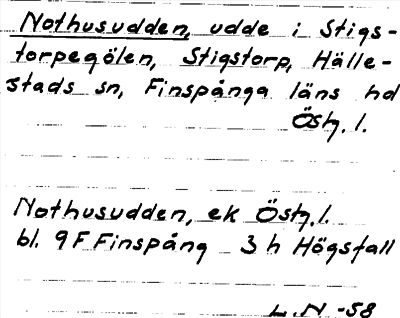 Nothusudden, udde i Stigs-
torpegölen, Stigstorp, Hälle-
stads sn, Finspånga läns hd
Östg. l.
Nothusudden, ek Östg. l.
bl. 9F Finspång 3 h Högsfall
L.N -58